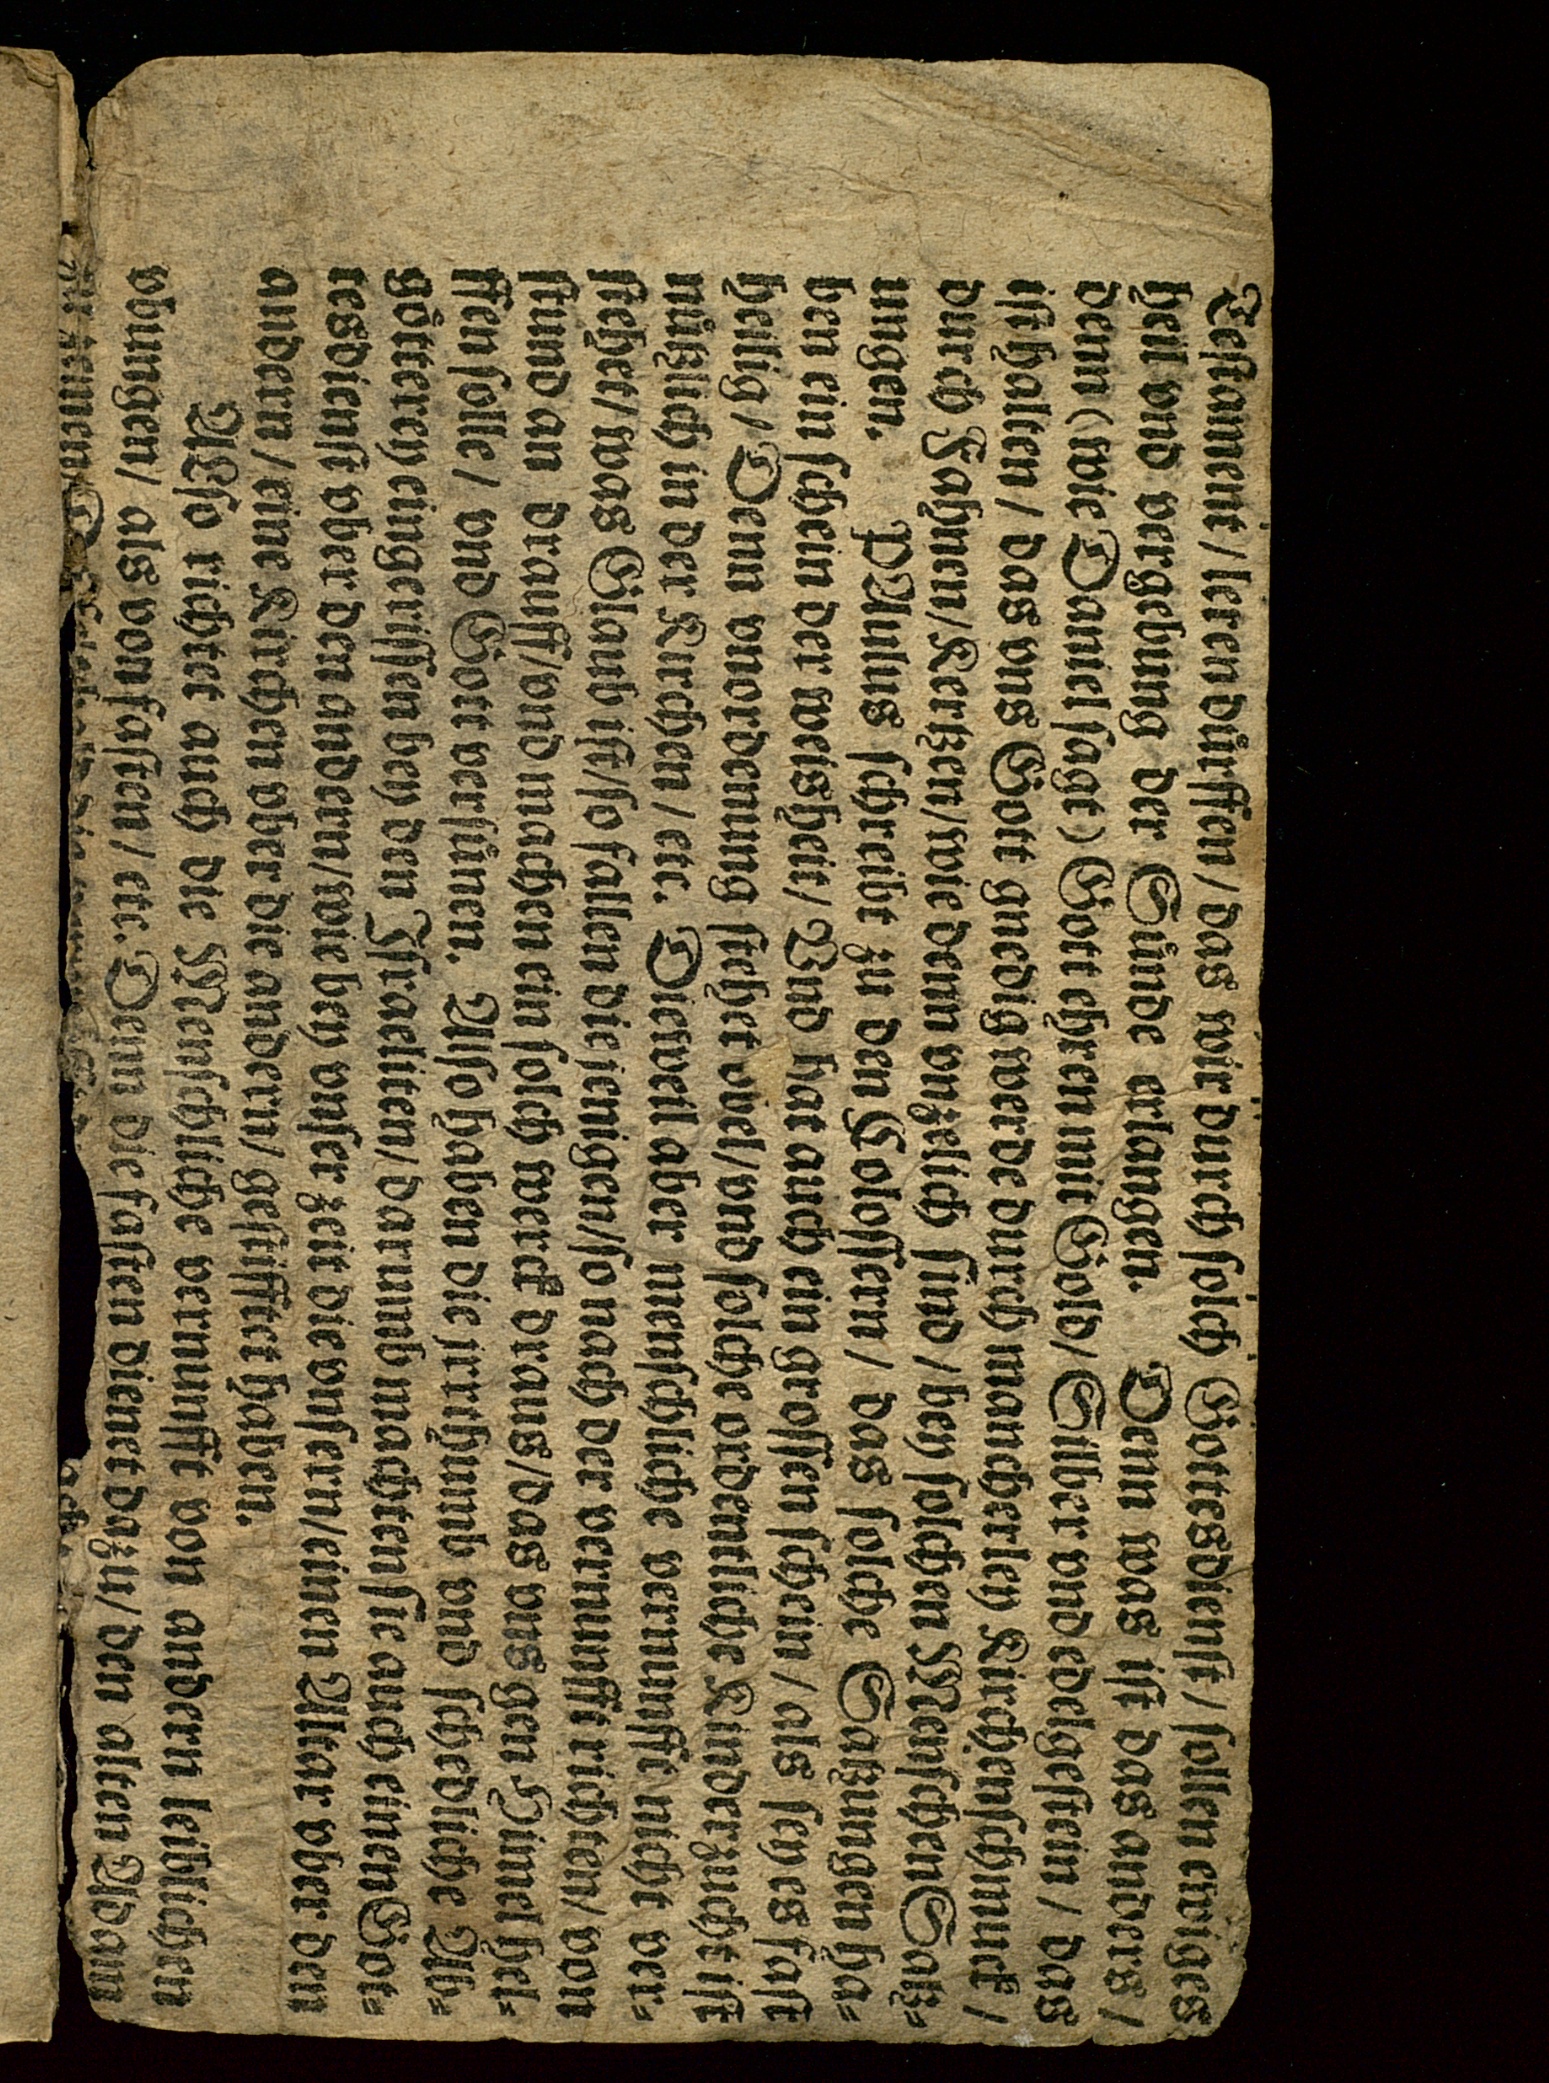 Testament / leren dürffen / das wir durch solch Gottesdienst / sollen ewiges
heil vnd vergebung der Sünde erlangen. Denn was ist das anders /
denn (wie Daniel sagt) Gott ehren mit Gold / Silber vnd edelgestein / das
ist halten / das vns Gott gnedig werde durch mancherley Kirchenschmuck /
durch Fahnen / Kertzen / wie denn vnzelich sind / bey solchen Menschen Satz⸗
ungen.
PAulus schreibt zu den Colossern / das solche Satzungen ha⸗
ben ein schein der weisheit / Vnd hat auch ein grossen schein / als sey es fast
heilig / Denn vnordenung stehet vbel / vnd solche ordentliche Kinderzucht ist
nützlich in der Kirchen / etc. Dieweil aber menschliche vernunfft nicht ver⸗
stehet / was Glaub ist / so fallen die jenigen / so nach der vernunfft richten / von
stund an drauff / vnd machen ein solch werck draus / das vns gen Himel hel⸗
ffen solle / vnd Gott versünen. Also haben die jrrthumb vnd schedliche Ab⸗
götterey eingerissen bey den Israeliten / darumb machten sie auch einen Got⸗
tesdienst vber den andern / wie bey vnser zeit die vnsern / einen Altar vber den
andern / eine Kirchen vber die andern / gestifftet haben.
ALso richtet auch die Menschliche vernunfft von andern leiblichen
vbungen / als von fasten / etc. Denn die fasten dienet dazu / den alten Adam